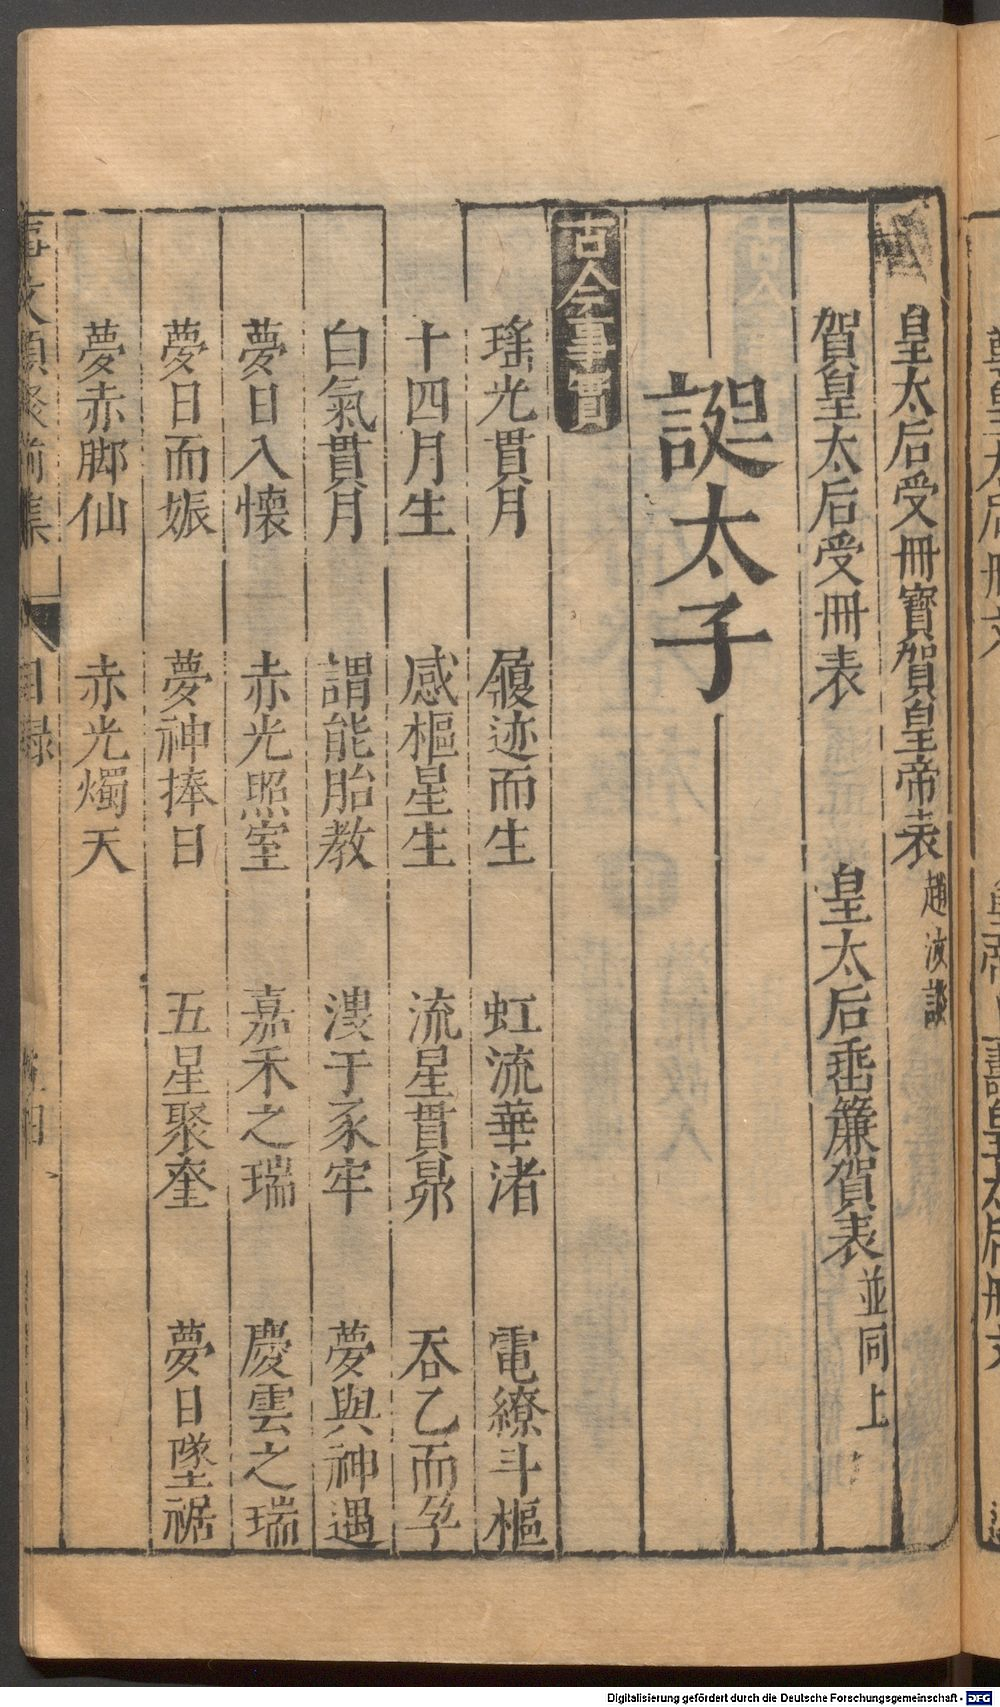 皇太后受冊寶賀皇帝表 趙汝談
賀皇太后受冊表 皇太后垂簾賀表 並同上
誕太子
古今事實
瑤光貫月 履迹而生 虹流華渚 電繚斗樞
十四月生 感樞星生 流星貫昴 吞乙而孕
白氣貫月 謂能胎教 溲于豕牢 夢與神遇
夢日入懷 赤光照室 嘉禾之瑞 慶雲之瑞
夢日而娠 夢神捧日 五星聚奎 夢日墜裾
夢赤脚仙 赤光燭天
事文類聚前集 目錄
Digitalisierung gefördert durch die Deutsche Forschungsgemeinschaft - DFG